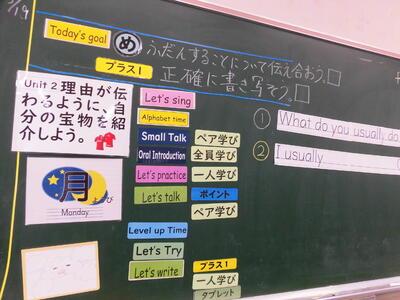 /19
Today's goal
め ふだんすることについて伝え合おう。□
プラス1 正確に書き写そう。□
Unit 2 理由が伝
わるように、自
分の宝物を紹
介しよう。
月
Monday
Let's sing
Alphabet time
Small Talk ペア学び
Oral Introduction 全員学び
Let's practice 一人学び
Let's talk ポイント
ペア学び
Level up Time
Let's Try
Let's write プラス1
一人学び
タブレット
① What do you usually do
② I usually